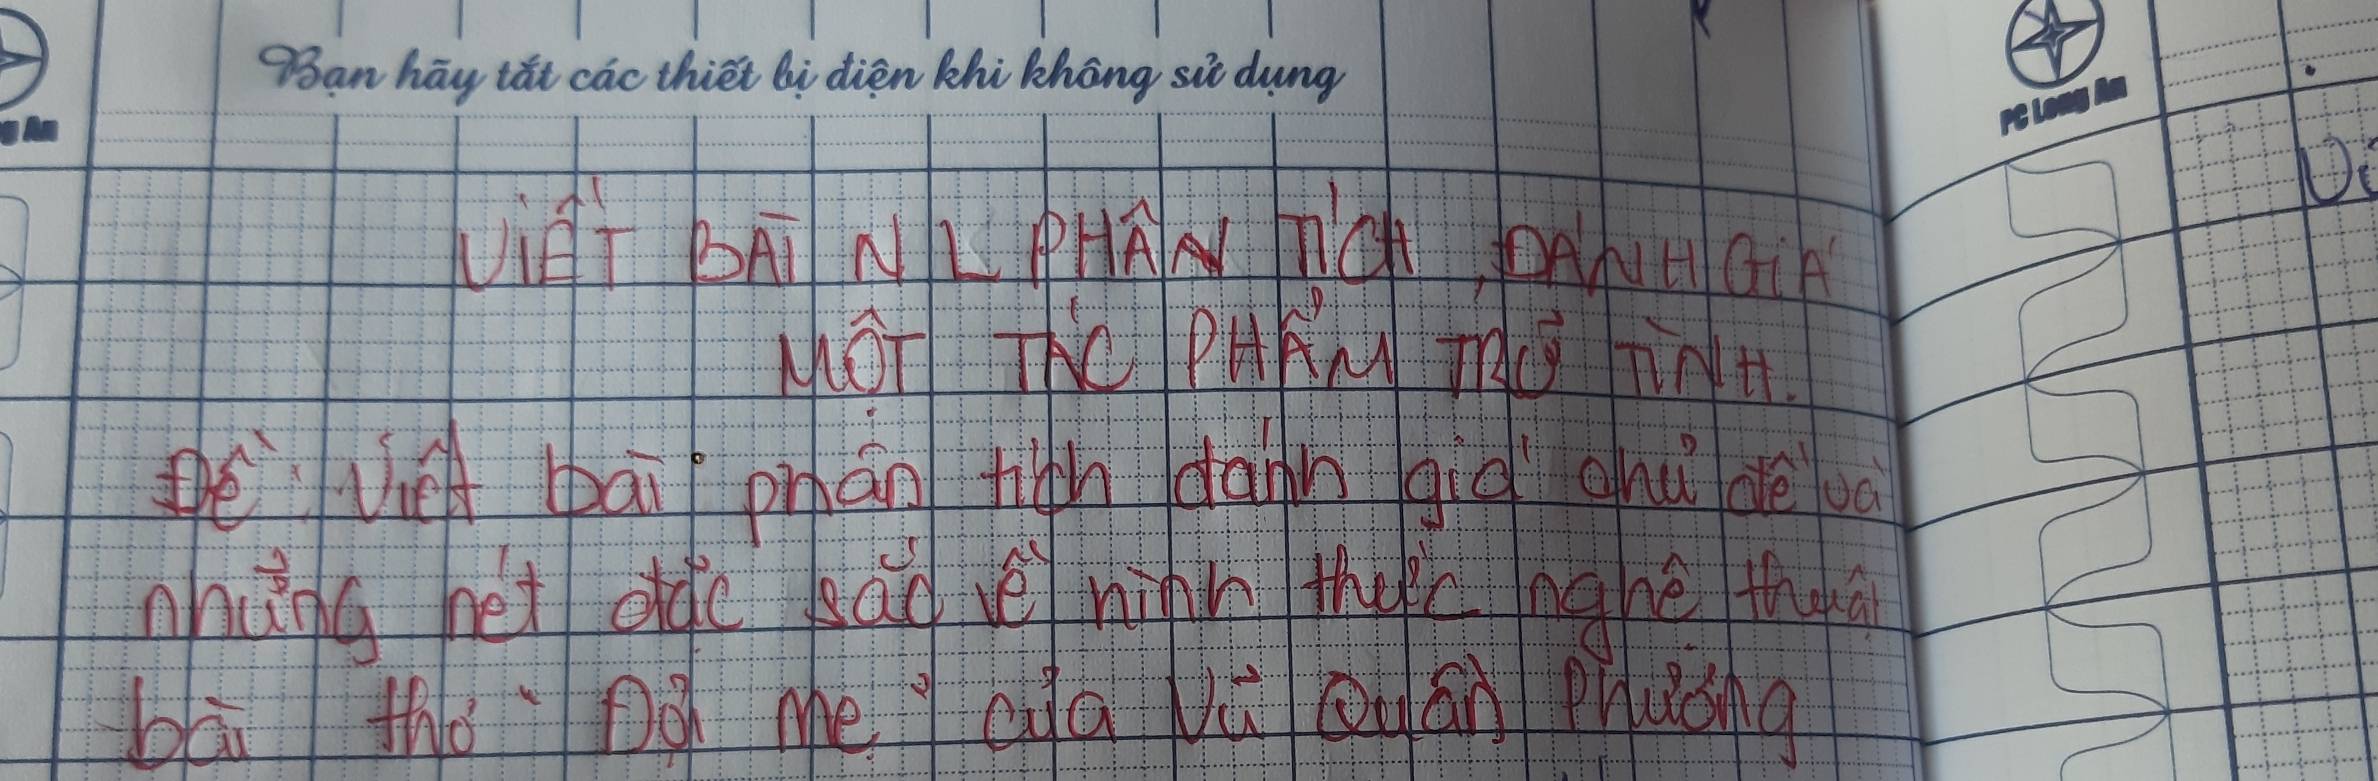 Bạn hãy tắt các thiết bị điện khi không sử dụng
PC Long An
g An
VIẾT BÀI NL PHÂN TÍCH, ĐÁNH GIÁ
MỘT TÁC PHẨM TRỮ TÌNH.
Đề: Viết bài phân tích đánh giá chủ đề và
những nét đặc sắc về hình thức nghệ thuật
bài thơ "Đợi mẹ" của Vũ Quần Phương